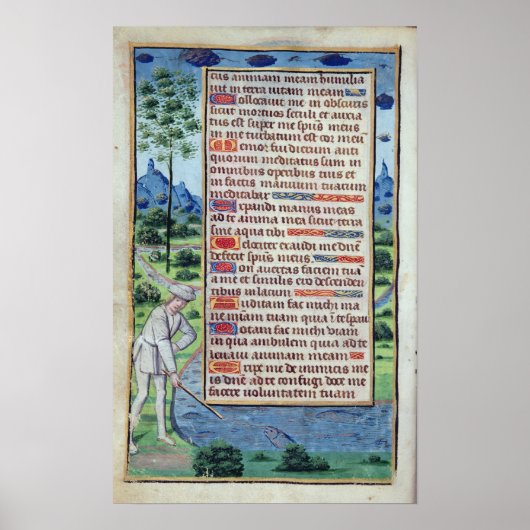 cus animam meam humilia
uit in terra uitam meam
Collocauit me in obscuris
sicut mortuos seculi et anxia
tus est super me spiritus meus
in me turbatum est cor meu
Memor fui dierum anti
quorum meditatus sum in
omnibus operibus tuis et
in factis manuum tuarum
meditabar
Expandi manus meas
ad te anima mea sicut terra
sine aqua tibi
Velociter exaudi me dne
defecit spus meus
Non auertas faciem tua
a me et similis ero descenden
tibus in lacum
Auditam fac michi ma
ne miam tuam quia i te spaui
Notam fac michi uiam
in qua ambulem quia ad te
leuaui animam meam
Eripe me de inimicis me
is dne ad te confugi doce me
facere voluntatem tuam